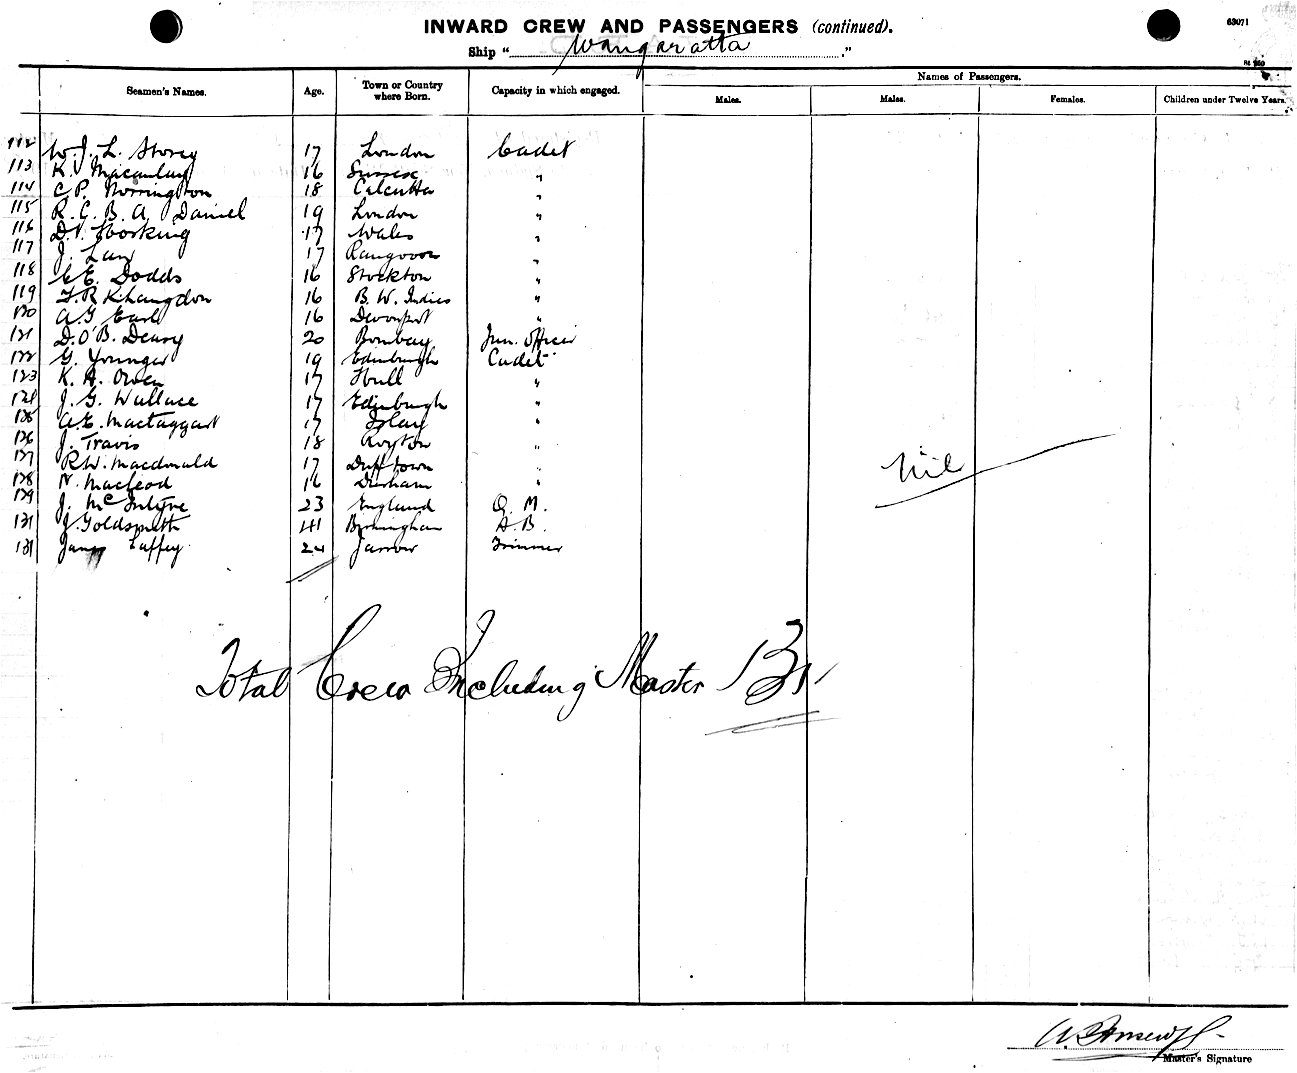 INWARD CREW AND PASSENGERS (continued).
63071
Ship "Wangaratta."
Seamen's Names. Age. Town or Country where Born. Capacity in which engaged. Names of Passengers.
Males. Males. Females. Children under Twelve Years.
112 W. J. L. Storey 17 London Cadet
113 K. Macaulay 16 Sussex "
114 C P. Norrington 18 Calcutta "
115 R. C. B. A. Daniel 19 London "
116 D. V. Hocking 17 Wales "
117 J. 17 Rangoon "
118 C E. Dodds 16 Stockton "
119 F. R. K. Langdon 16 B. W. Indies "
120 A. G Earl 16 Devonport "
121 D. O'B. Deary 20 Bombay Jun. Officer
122 G. Younger 19 Edinburgh Cadet
123 K. A. Owen 17 Hull "
124 J. G. Wallace 17 Edinburgh "
125 A. E. Mactaggart 17 Islay "
126 J. Travis 18 Royton "
127 R. W. Macdonald 17 Dufftown "
128 N. Macleod 16 Durham "
129 J. McIntyre 23 England Q. M.
131 J Goldsmith 41 Birmingham A. B.
131 James Laffey 24 Jarrow Trimmer
Nil
Total Crew Including Master 131
Master's Signature